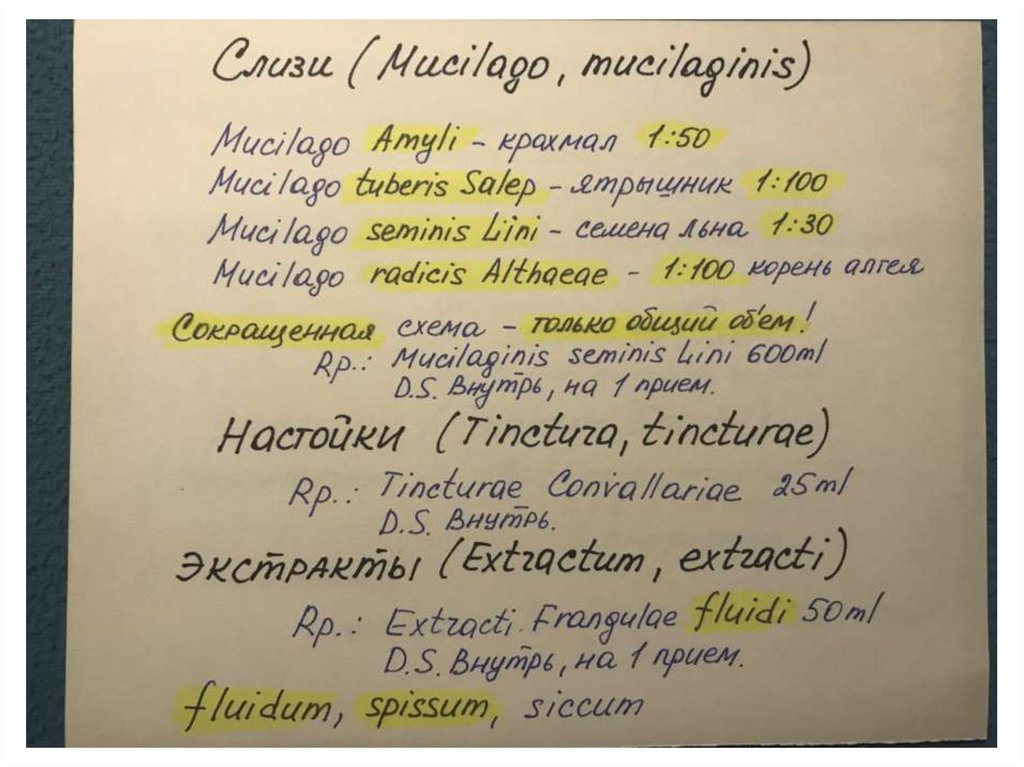 Слизи (Mucilago, mucilaginis)
Mucilago Amyli - крахмал 1:50
Mucilago tuberis Salep - ятрышник 1:100
Mucilago seminis Lini - семена льна 1:30
Mucilago radicis Althaeae - 1:100 корень алтея
Сокращенная схема - только общий об'ем!
Rp.: Mucilaginis seminis Lini 600ml
D.S. Внутрь, на 1 прием.
Настойки (Tinctura, tincturae)
Rp.: Tincturae Convallariae 25ml
D.S. Внутрь.
Экстракты (Extractum, extracti)
Rp.: Extracti Frangulae fluidi 50ml
D.S. Внутрь, на 1 прием.
fluidum, spissum, siccum